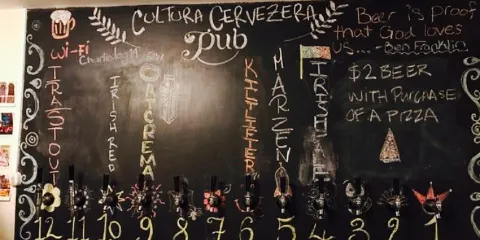 CULTURA CERVEZERA
PUB
Beer is proof
that God loves
us... - Ben Franklin
Wi-Fi
TRASTOUT
IRISH RED
OATCREMA
KITLEISER
MARZEN
IRISH
$2 BEER
WITH PURCHASE
OF A PIZZA
12 11 10 9 8 7 6 5 4 3 2 1